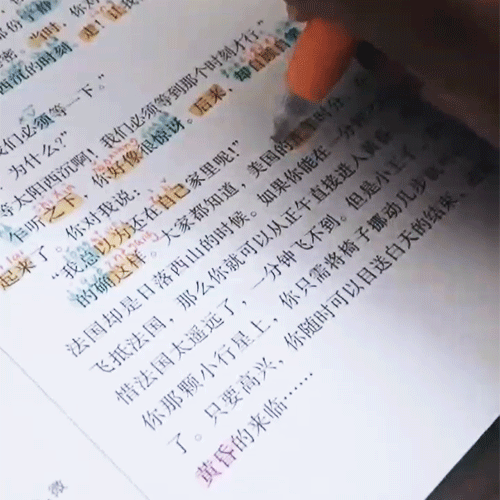 密。当时，你对
西沉的时刻。走！让我
我们必须等一下。”
，为什么?”
等太阳西沉啊！我们必须等到那个时刻才行。”
乍听之下，你好像很惊讶。后来，却自顾自
起来了。你对我说：
“我总以为还在自己家里呢!”
的确这样。大家都知道，美国的 时分，
法国却是日落西山的时候。如果你能在一分钟
飞抵法国，那么你就可以从正午直接进入黄昏
惜法国太遥远了，一分钟飞不到。但是小王子，
你那颗小行星上，你只需将椅子挪动几步就
了。只要高兴，你随时可以目送白天的结束、
黄昏的来临……
微